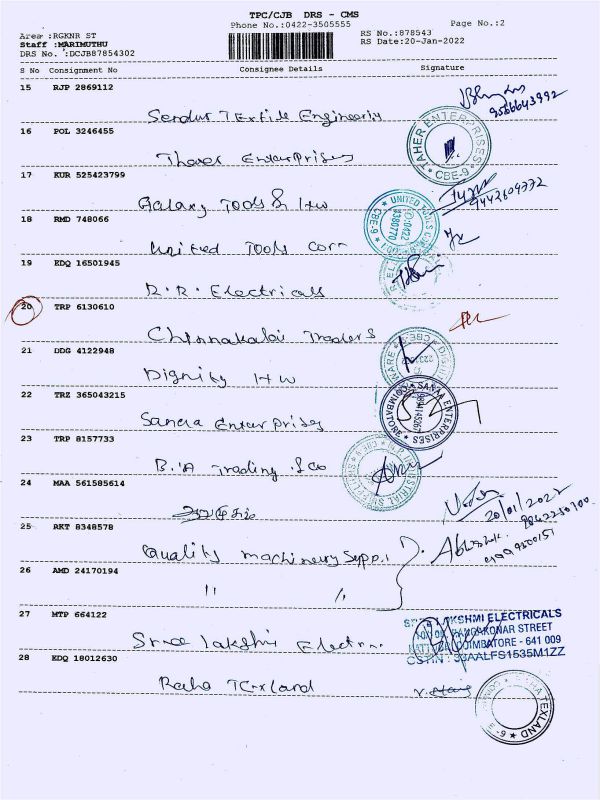 TPC/CJB DRS - CMS
Phone No.:0422-3505555
Page No.:2
Area :RGKNR ST
Staff :MARIMUTHU
DRS No. :DCJB87854302
RS No.:878543
RS Date:20-Jan-2022
S No Consignment No Consignee Details Signature
15 RJP 2869112
Sendur Textile Engineering
9566643992
16 POL 3246455
Thaher Enterprises
TAHER ENTERPRISES
CBE-9
17 KUR 525423799
Galaxy Tools & H/w
18 RMD 748066
United Tools Corr
UNITED TOOLS
CBE-9
19 EDQ 16501945
R.R. Electricals
20 TRP 6130610
Chinnakalai Traders
21 DDG 4122948
Dignity H/w
22 TRZ 365043215
Sanaa Enterprises
SANAA ENTERPRISES
COIMBATORE
23 TRP 8157733
B.A Trading & Co
24 MAA 561585614
20/01/2022
25 AKT 8348578
Quality machinery Suppl
26 AMD 24170194
" "
27 MTP 664122
Sree lakshmi Electri
LAKSHMI ELECTRICALS
RANGAKONAR STREET
COIMBATORE - 641 009
GSTIN : 33AALFS1535M1ZZ
28 KDQ 18012630
Raha Texland
TEXLAND